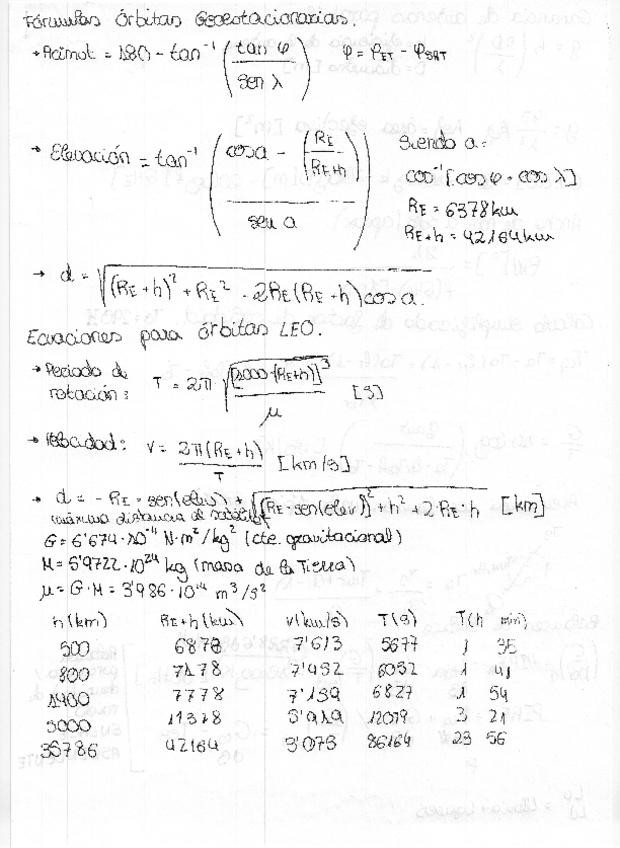 Fórmulas Órbitas Geoestacionarias.
→ Acimut = 180 - tan⁻¹ (tan φ / sen λ)   φ = φET - φSAT
→ Elevación = tan⁻¹ ((cos a - (RE / RE+h)) / sen a)   Siendo a:
cos⁻¹[cos φ · cos λ]
RE = 6378 km
RE+h = 42164 km
→ d = √((RE+h)² + RE² - 2RE(RE+h)cos a.
Ecuaciones para órbitas LEO.
→ Periodo de rotación: T = 2π √([1000·(RE+h)]³ / μ) [S]
→ Velocidad: V = 2π(RE+h) / T [km/s]
→ d = -RE · sen(elev) + √((RE·sen(elev))² + h² + 2·RE·h [km]
máxima distancia de
G = 6'674·10⁻¹¹ N·m²/kg² (cte. gravitacional)
M = 5'9722·10²⁴ kg (masa de la Tierra)
μ = G·M = 3'986·10¹⁴ m³/s²
h(km) RE+h(km) v(km/s) T(s) T(h min)
500 6878 7'613 5677 1 35
800 7178 7'452 6052 1 41
1400 7778 7'159 6827 1 54
5000 11378 5'919 12079 3 21
35786 42164 3'075 86164 23 56